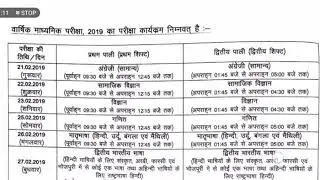 :11
STOP
वार्षिक माध्यमिक परीक्षा, 2019 का परीक्षा कार्यक्रम निम्नवत् है :-
परीक्षा की तिथि/दिन
प्रथम पाली (प्रथम शिफ्ट)
द्वितीय पाली (द्वितीय शिफ्ट)
21.02.2019
(गुरूवार)
अंग्रेजी (सामान्य)
(पूर्वाहन 09:30 बजे से अपराहन 12:45 बजे तक)
अंग्रेजी (सामान्य)
(अपराहन 01:45 बजे से अपराहन 05:00 बजे तक)
22.02.2019
(शुक्रवार)
सामाजिक विज्ञान
(पूर्वाहन 09:30 बजे से अपराहन 12:45 बजे तक)
सामाजिक विज्ञान
(अपराहन 01:45 बजे से अपराहन 05:00 बजे तक)
23.02.2019
(शनिवार)
विज्ञान
(पूर्वाहन 09:30 बजे से अपराहन 12:45 बजे तक)
विज्ञान
(अपराहन 01:45 बजे से अपराहन 05:00 बजे तक)
25.02.2019
(सोमवार)
गणित
(पूर्वाहन 09:30 बजे से अपराहन 12:45 बजे तक)
गणित
(अपराहन 01:45 बजे से अपराहन 05:00 बजे तक)
26.02.2019
(मंगलवार)
मातृभाषा (हिन्दी, उर्दू, बंगला एवं मैथिली)
(पूर्वाहन 09:30 बजे से अपराहन 12:45 बजे तक)
मातृभाषा (हिन्दी, उर्दू, बंगला एवं मैथिली)
(अपराहन 01:45 बजे से अपराहन 05:00 बजे तक)
27.02.2019
(बुधवार)
द्वितीय भारतीय भाषा
(हिन्दी भाषियों के लिए संस्कृत, अरबी, फारसी एवं
भोजपुरी में से कोई एक भाषा तथा अहिन्दी भाषियों के
लिए राष्ट्रभाषा हिन्दी)
द्वितीय भारतीय भाषा
(हिन्दी भाषियों के लिए संस्कृत, अरबी, फारसी एवं
भोजपुरी में से कोई एक भाषा तथा अहिन्दी भाषियों के
लिए राष्ट्रभाषा हिन्दी)